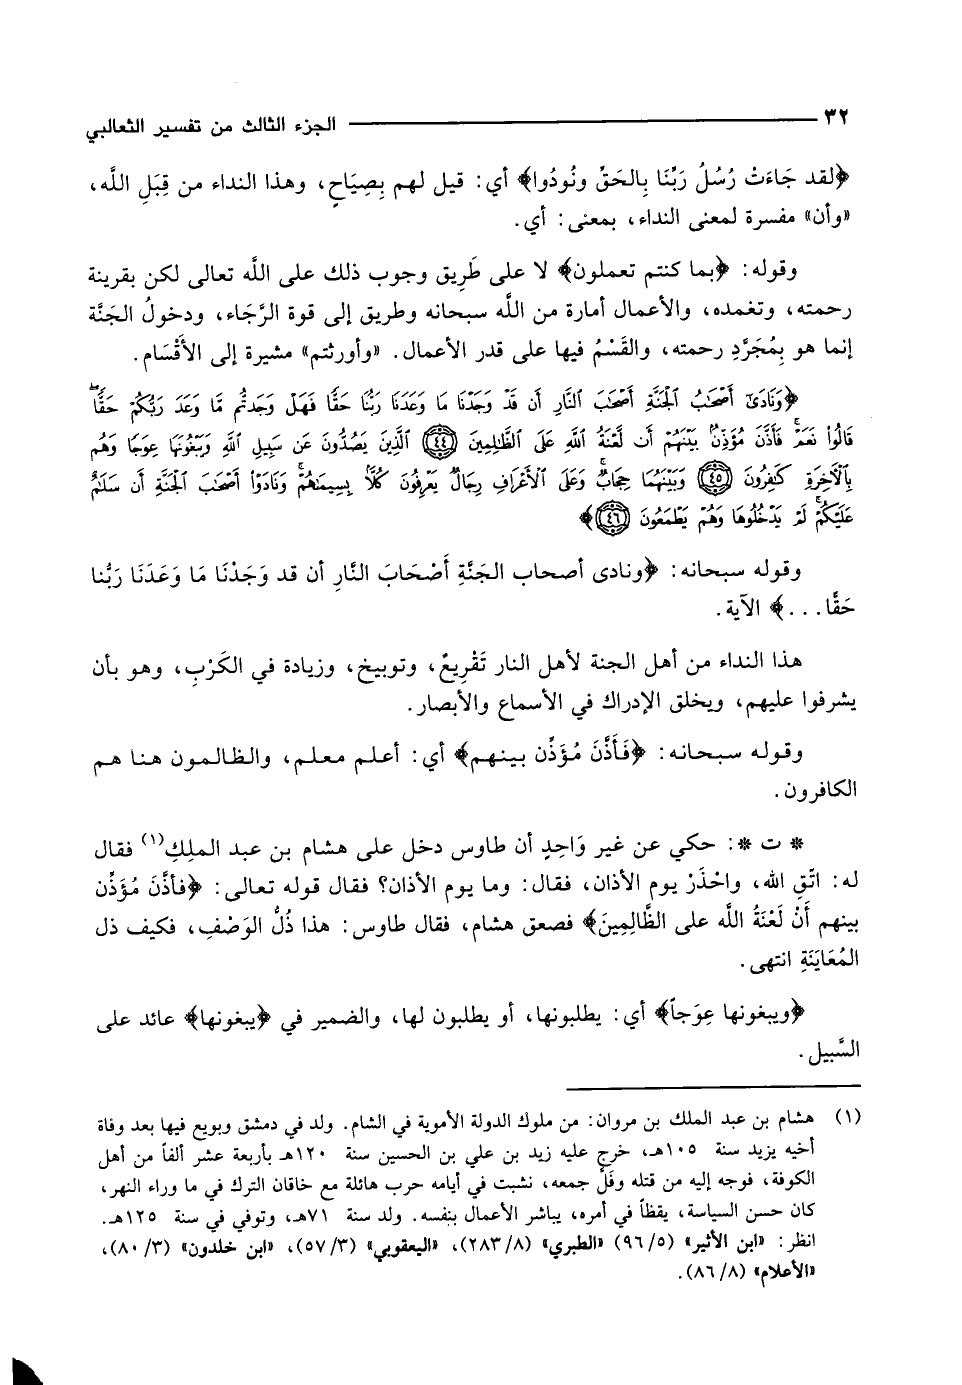 ٣٢ الجزء الثالث من تفسير الثعالبي
﴿لقد جَاءَتْ رُسُلُ رَبِّنَا بِالحَقِّ ونُودُوا﴾ أي: قيل لهم بِصِيَاحٍ، وهذا النداء من قِبَلِ اللَّه،
«وأن» مفسرة لمعنى النداء، بمعنى: أي.
وقوله: ﴿بما كنتم تعملون﴾ لا على طَرِيق وجوب ذلك على اللَّه تعالى لكن بقرينة
رحمته، وتغمده، والأعمال أمارة من اللَّه سبحانه وطريق إلى قوة الرَّجَاء، ودخولُ الجَنَّة
إنما هو بِمُجَرَّدِ رحمته، والقَسْمُ فيها على قدر الأعمال. «وأورثتم» مشيرة إلى الأَقْسَام.
﴿وَنَادَىٰٓ أَصْحَٰبُ ٱلْجَنَّةِ أَصْحَٰبَ ٱلنَّارِ أَن قَدْ وَجَدْنَا مَا وَعَدَنَا رَبُّنَا حَقًّا فَهَلْ وَجَدتُّم مَّا وَعَدَ رَبُّكُمْ حَقًّاۖ
قَالُوا۟ نَعَمْۚ فَأَذَّنَ مُؤَذِّنٌۢ بَيْنَهُمْ أَن لَّعْنَةُ ٱللَّهِ عَلَى ٱلظَّٰلِمِينَ ﴿٤٤﴾ ٱلَّذِينَ يَصُدُّونَ عَن سَبِيلِ ٱللَّهِ وَيَبْغُونَهَا عِوَجًا وَهُم
بِٱلْءَاخِرَةِ كَٰفِرُونَ ﴿٤٥﴾ وَبَيْنَهُمَا حِجَابٌۚ وَعَلَى ٱلْأَعْرَافِ رِجَالٌ يَعْرِفُونَ كُلًّۢا بِسِيمَىٰهُمْۚ وَنَادَوْا۟ أَصْحَٰبَ ٱلْجَنَّةِ أَن سَلَٰمٌ
عَلَيْكُمْۚ لَمْ يَدْخُلُوهَا وَهُمْ يَطْمَعُونَ ﴿٤٦﴾﴾
وقوله سبحانه: ﴿ونادى أصحاب الجَنَّةِ أَصْحَابَ النَّارِ أن قد وَجَدْنَا مَا وَعَدَنَا رَبُّنا
حَقًّا...﴾ الآية.
هذا النداء من أهل الجنة لأهل النار تَقْرِيعٌ، وتوبيخ، وزيادة في الكَرْبِ، وهو بأن
يشرفوا عليهم، ويخلق الإدراك في الأسماع والأبصار.
وقوله سبحانه: ﴿فَأَذَّنَ مُؤَذِّن بينهم﴾ أي: أعلم معلم، والظالمون هنا هم
الكافرون.
* ت *: حكي عن غير وَاحِدٍ أن طاوس دخل على هشام بن عبد الملِكِ(١) فقال
له: اتَّقِ الله، واحْذَرْ يوم الأذان، فقال: وما يوم الأذان؟ فقال قوله تعالى: ﴿فأذَّنَ مُؤَذِّن
بينهم أَنْ لَعْنَةُ اللَّه على الظَّالِمِينَ﴾ فصعق هشام، فقال طاوس: هذا ذُلُّ الوَصْفِ، فكيف ذل
المُعَايَنَةِ انتهى.
﴿ويبغونها عِوَجاً﴾ أي: يطلبونها، أو يطلبون لها، والضمير في ﴿يبغونها﴾ عائد على
السَّبيل.
(١) هشام بن عبد الملك بن مروان: من ملوك الدولة الأموية في الشام. ولد في دمشق وبويع فيها بعد وفاة
أخيه يزيد سنة ١٠٥هـ، خرج عليه زيد بن علي بن الحسين سنة ١٢٠هـ بأربعة عشر ألفاً من أهل
الكوفة، فوجه إليه من قتله وفَلَّ جمعه، نشبت في أيامه حرب هائلة مع خاقان الترك في ما وراء النهر،
كان حسن السياسة، يقظاً في أمره، يباشر الأعمال بنفسه. ولد سنة ٧١هـ، وتوفي في سنة ١٢٥هـ.
انظر: «ابن الأثير» (٩٦/٥) «الطبري» (٢٨٣/٨)، «اليعقوبي» (٥٧/٣)، «ابن خلدون» (٨٠/٣)،
«الأعلام» (٨٦/٨).